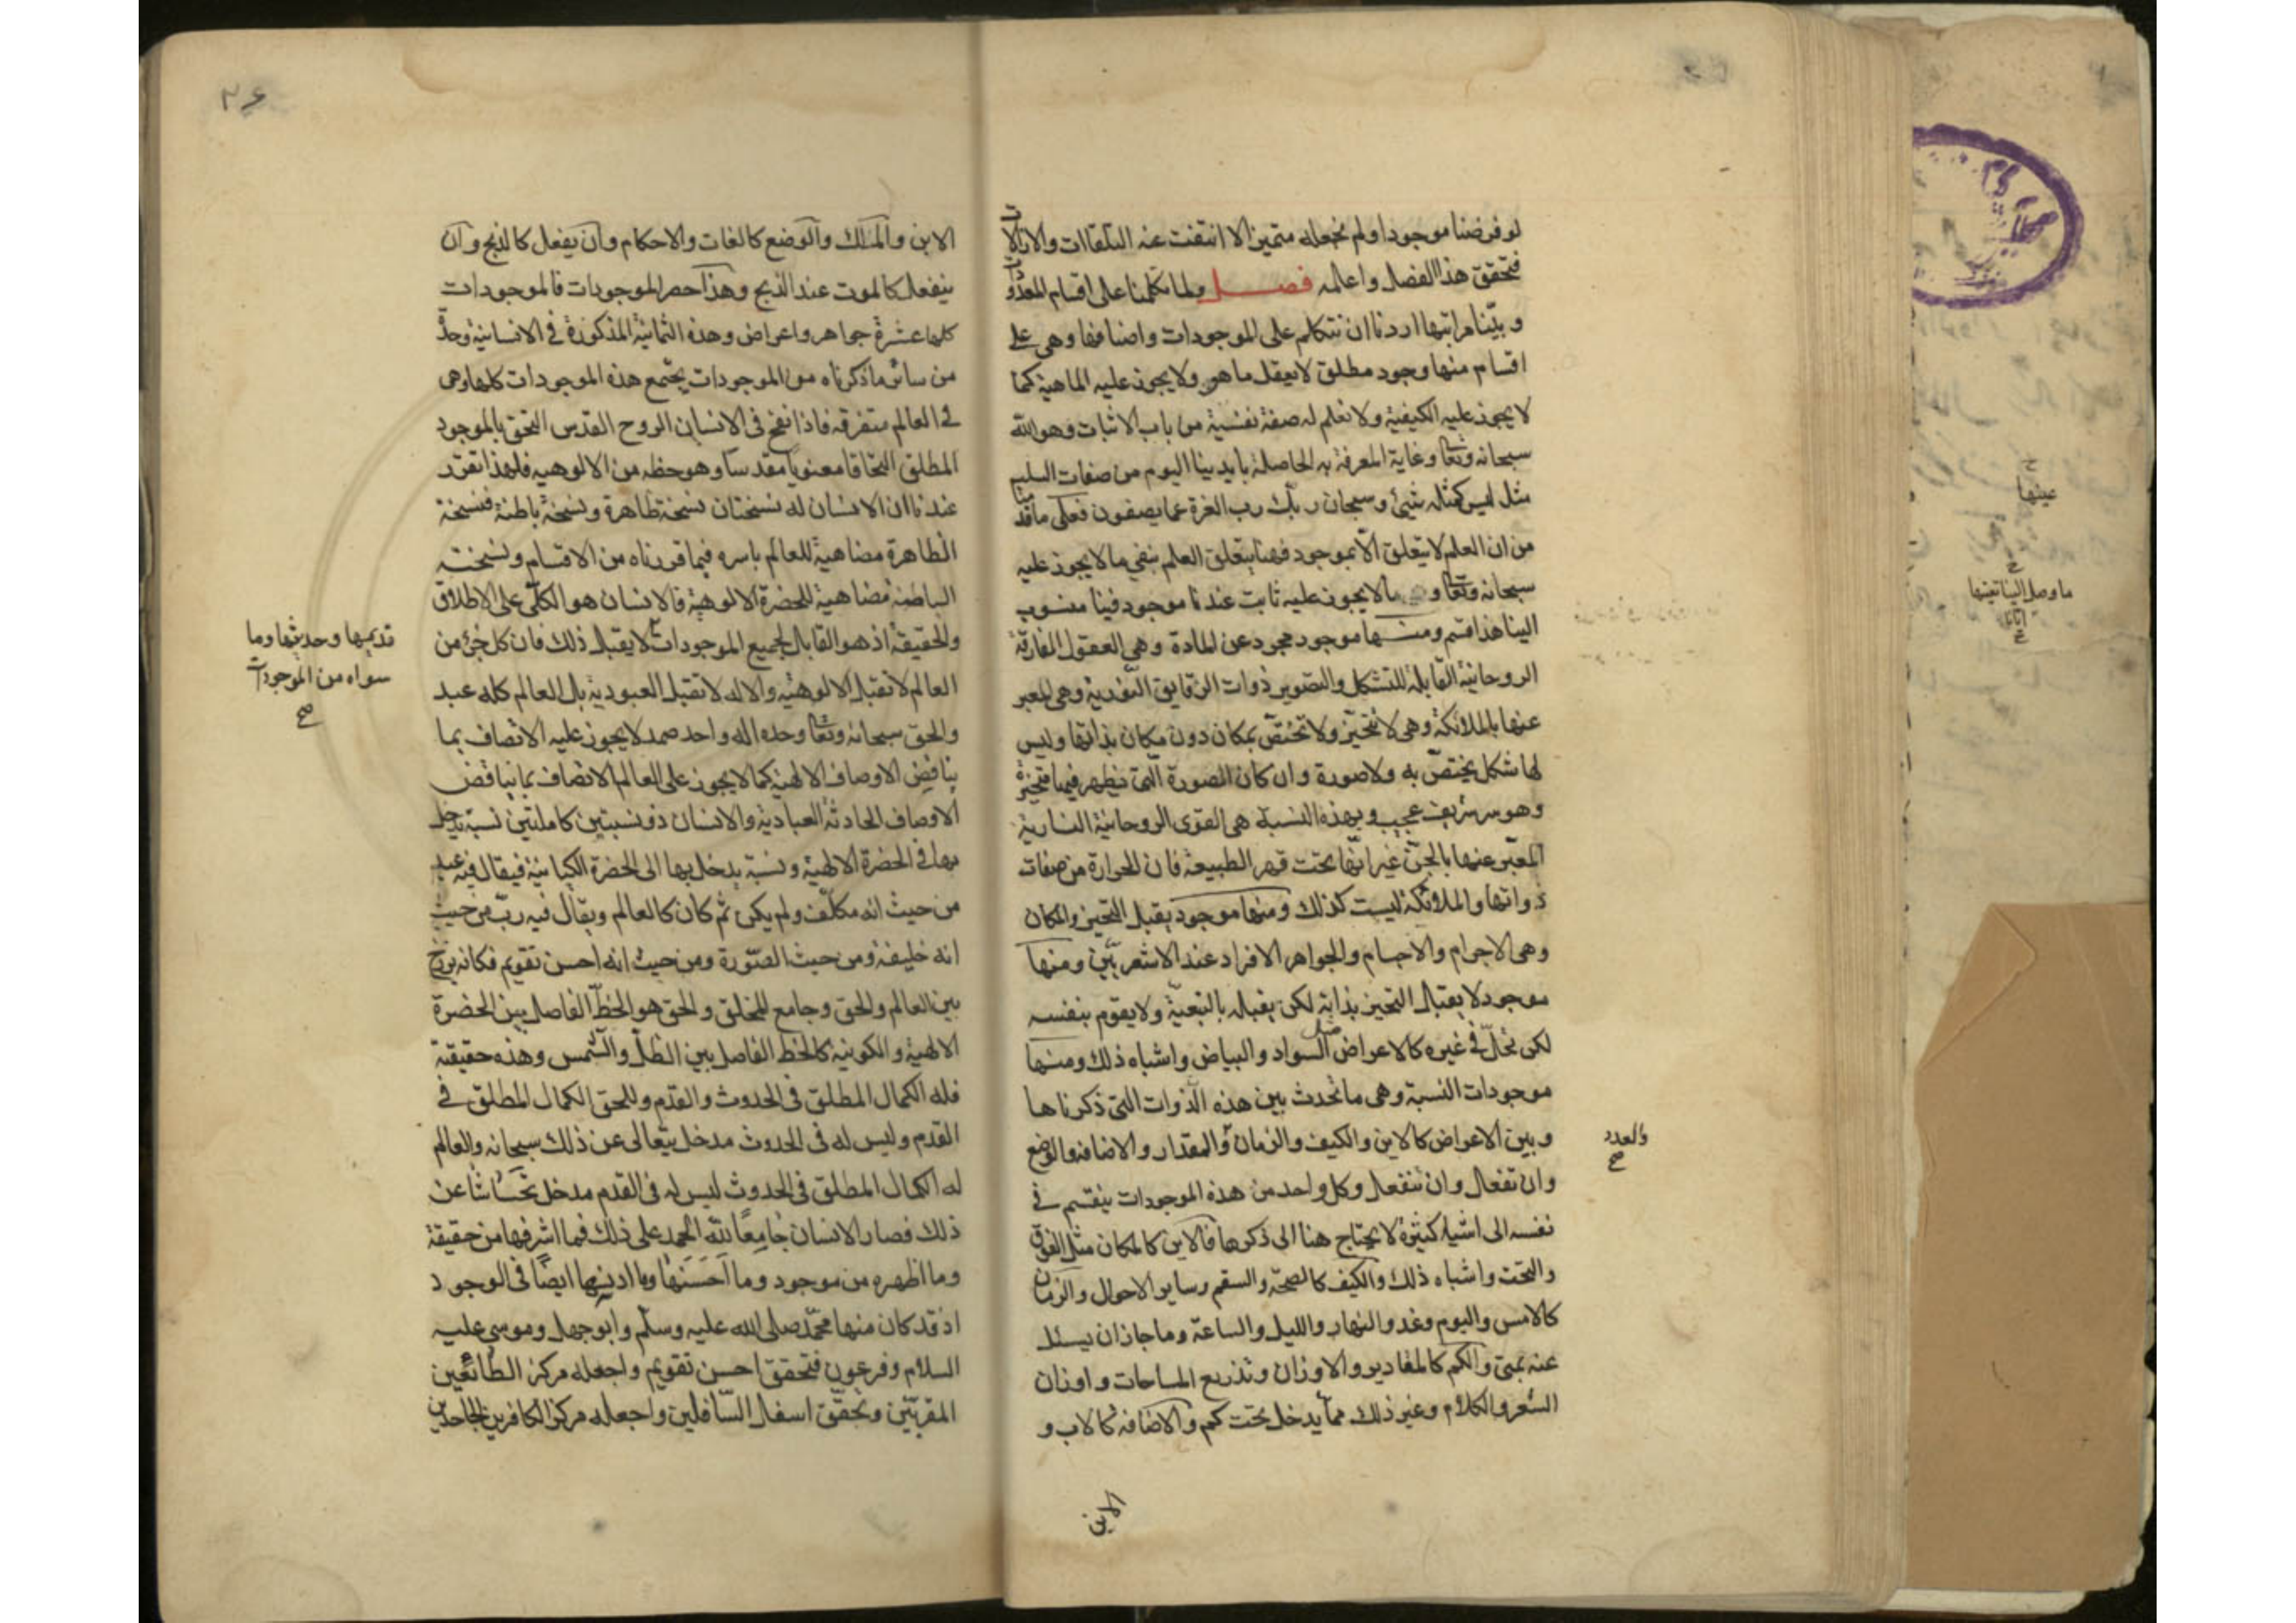 لو فرضنا موجودا ولم نجعله متميزا لا انتفت عنه التعلقات والاضافات
فتحقق هذا الفصل واعلمه فصل ولما تكلمنا على اقسام المعدومات
وبيّنا مراتبها اردنا ان نتكلم على الموجودات واصنافها وهى على
اقسام منها وجود مطلق لا يعقل ماهو ولا يجوز عليه الماهية كما
لا يجوز عليه الكيفية ولا نعلم له صفة نفسية من باب الاثبات وهو الله
سبحانه وتعا وغاية المعرفة به الحاصلة بايدينا اليوم من صفات السلب
مثل ليس كمثله شيئ وسبحان ربك رب العزة عما يصفون فعلى ما قدمنا
من ان العلم لا يتعلق الّا بموجود فهنا يتعلق العلم بنفي ما لا يجوز عليه
سبحانه وتعا و ما لا يجوز عليه ثابت عندنا موجود فينا منسوب
الينا هذا قسم ومنها موجود مجرد عن المادة وهى العقول المفارقة
الروحانية القابلة للتشكل والتصوير ذوات الرقايق النّورية وهى المعبر
عنها بالملائكة وهى لا تتحيّز ولا تختصّ بمكان دون مكان بذاتها وليس
لها شكل يختصّ به ولا صورة وان كان الصورة الّتى تظهر فيها متحيّزة
وهو سر شريف عجيب وبهذه النسبة هى القوى الروحانية النارية
المعبّر عنها بالجنّ غير انّها تحت قهر الطبيعة فان الحرارة من صفات
ذواتها والملائكة ليست كذلك ومنها موجود يقبل التحيز والمكان
وهى الاجرام والاجسام والجواهر الافراد عند الاشعريّين ومنها
موجود لا يقبل التحيز بذاته لكن يقبله بالتبعيّة ولا يقوم بنفسه
لكن تحلّ فى غيره كالاعراض مثل السواد والبياض واشباه ذلك ومنها
موجودات النسبة وهى ما تحدث بين هذه الذوات التى ذكرناها
وبين الاعراض كالاين والكيف والزمان والمقدار والاضافه والوضع
والعدد
صح
وان تفعل وان تنفعل وكل واحد من هذه الموجودات ينقسم فى
نفسه الى اشياء كثيرة لا يحتاج هنا الى ذكرها فالاين كالمكان مثل الفوق
والتحت واشباه ذلك والكيف كالصحة والسقم وساير الاحوال والزمان
كالامس واليوم وغد والنهار والليل والساعة وما جاز ان يسئل
عنه بمتى والكم كالمقادير والاوزان وتذريع المساحات واوزان
الشعر والكلام وغير ذلك ممّا يدخل تحت كم والاضافه كالاب و
الابن
الابن والملك والوضع كالغات والاحكام وان يفعل كالذبح وان
ينفعل كالموت عند الذبح وهذا حصر الموجودات فالموجودات
كلها عشرة جواهر واعراض وهذه الثمانية المذكورة فى الانسانية وحدّ
من سائر ما ذكرناه من الموجودات يجتمع هذه الموجودات كلها وهى
فى العالم متفرقه فاذا نفخ فى الانسان الروح القدس التحق بالموجود
المطلق التحاقا معنويا مقدسا وهو حظه من الالوهيه فلهذا تقرر
عندنا ان الانسان له نسختان نسخة ظاهرة ونسخة باطنة فنسخة
الظاهرة مضاهية للعالم باسره فيما قررناه من الاقسام ونسخته
الباطنة مضاهية للحضرة الالوهية فالانسان هو الكلّى على الاطلاق
والحقيقة اذ هو القابل لجميع الموجودات لا يقبل ذلك فان كل جزء من
قديمها وحديثها وما
سواه من الموجودات
صح
العالم لا تقبل الالوهيّة والاله لا تقبل العبودية بل العالم كله عبد
والحق سبحانه وتعا وحده اله واحد صمد لا يجوز عليه الاتصاف بما
يناقض الاوصاف الالهية كما لا يجوز على العالم الاتصاف بما يناقض
الاوصاف الحادثة العبادية والانسان ذو نسبتين كاملتين نسبة يدخل
بها فى الحضرة الالهية ونسبة يدخل بها الى الحضرة الكيانية فيقال فيه عبد
من حيث انه مكلّف ولم يكن ثم كان كالعالم ويقال فيه ربّ من حيث
انه خليفة ومن حيث الصّورة ومن حيث انه احسن تقويم فكانه برزخ
بين العالم والحق وجامع للخلق والحق هو الخطّ الفاصل بين الحضرة
الالهية والكونيه كالخط الفاصل بين الظلّ والشّمس وهذه حقيقة
فله الكمال المطلق فى الحدوث والقدم وللحق الكمال المطلق فى
القدم وليس له فى الحدوث مدخل يتعالى عن ذلك سبحانه والعالم
له الكمال المطلق فى الحدوث ليس له فى القدم مدخل عن
ذلك فصار الانسان جامعًا لله الحمد على ذلك فما اشرفها من حقيقة
وما اظهره من موجود وما احسنها وما ادنيها ايضًا فى الوجود
اذ قد كان منها محمّد صلى الله عليه وسلّم وابو جهل وموسى عليه
السلام وفرعون فتحقق احسن تقويم واجعله مركز الطائعين
المقربّين وتحقّق اسفل السّافلين واجعله مركز الكافرين الجاحدين
عينها
صح
ما وصل الينا تعينها